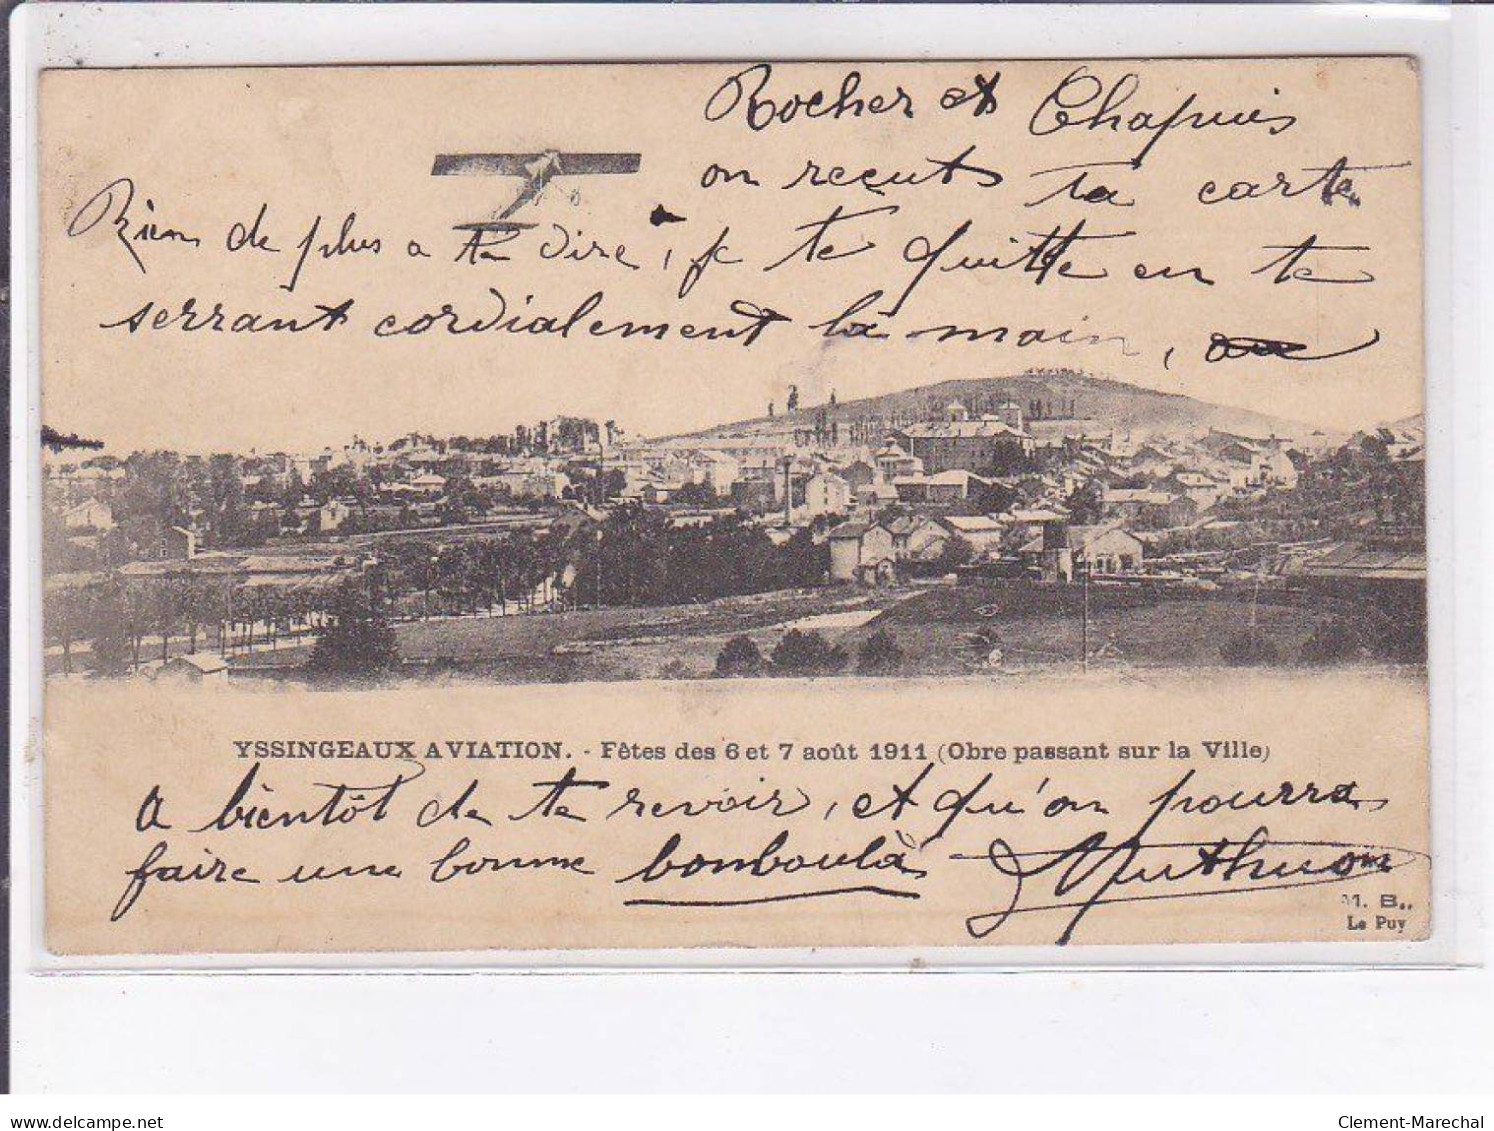 Rocher et Chapuis
on recuts ta carte
Rien de plus a te dire, je te quitte en te
serrant cordialement la main,
YSSINGEAUX AVIATION. - Fêtes des 6 et 7 août 1911 (Obre passant sur la Ville)
A bientôt de te revoir, et qu'on pourra
faire une bonne bomboula
M. B..
Le Puy
delcampe.net
Clement-Marechal